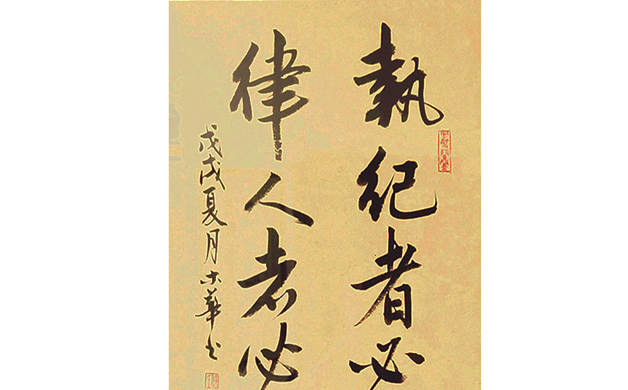 執紀者必
律人者必
戊戌夏月大華书